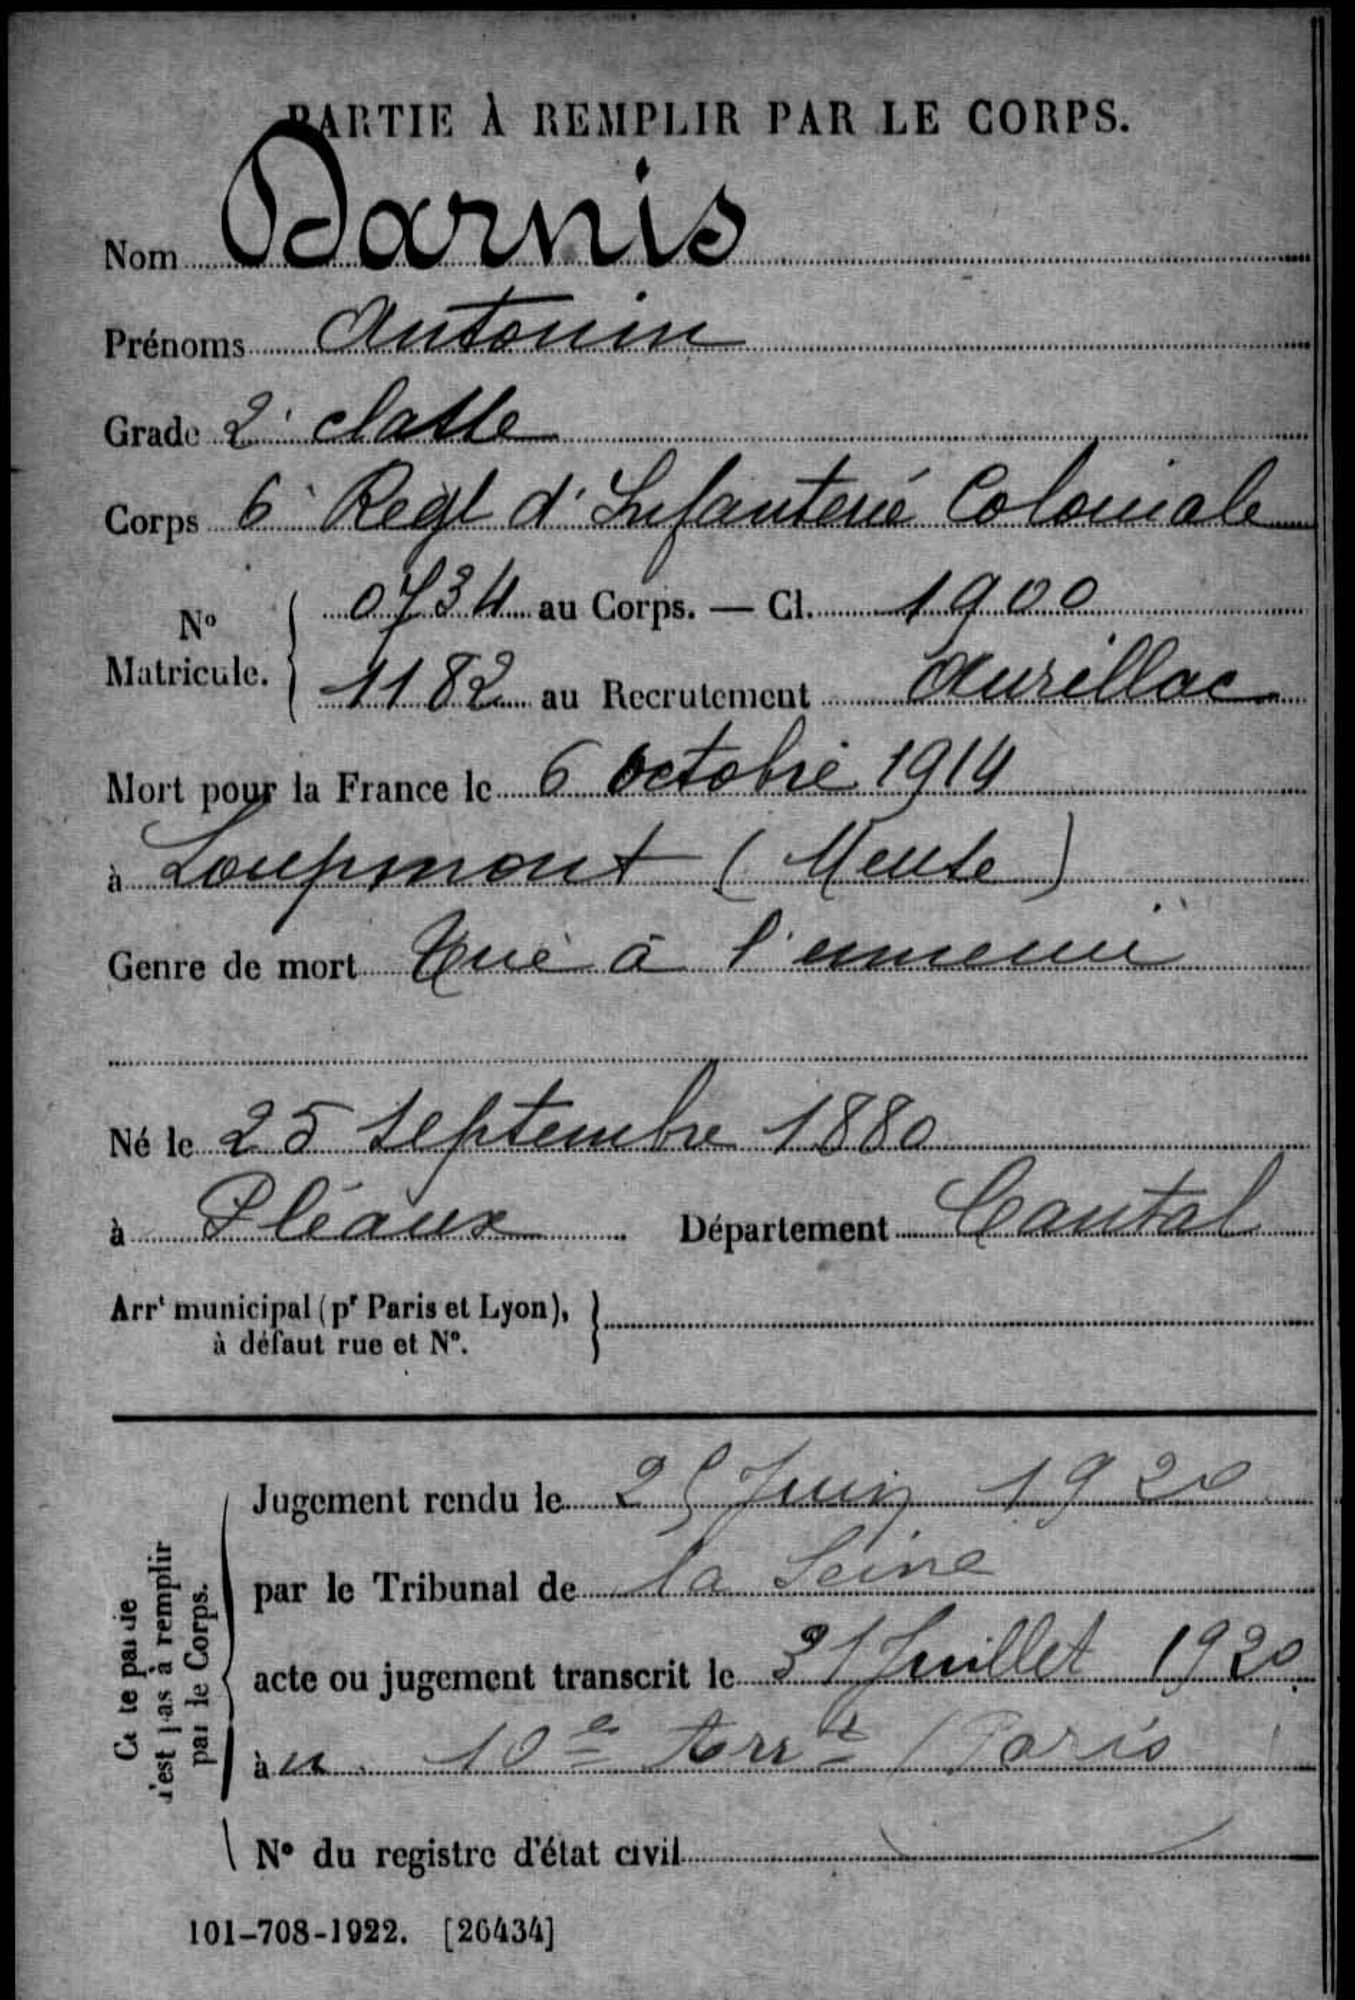 PARTIE À REMPLIR PAR LE CORPS.
Nom Darnis
Prénoms Antonin
Grade 2e classe
Corps 6e Regt d'Infanterie Coloniale
No Matricule. 0734 au Corps. — Cl. 1900
1182 au Recrutement Aurillac
Mort pour la France le 6 octobre 1914
à Loupmont (Meuse)
Genre de mort Tué à l'ennemi
Né le 25 septembre 1880
à Pléaux Département Cantal
Arrt municipal (pr Paris et Lyon),
à défaut rue et No.
Cette partie
n'est pas à remplir
par le Corps.
Jugement rendu le 25 Juin 1920
par le Tribunal de la Seine
acte ou jugement transcrit le 31 Juillet 1920
à u 10e Arrt Paris
No du registre d'état civil
101-708-1922. [26434]